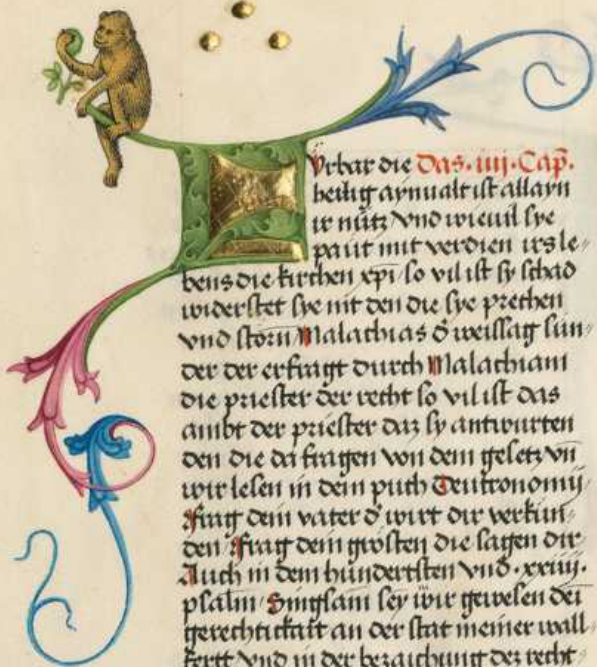 Vrbar die Das · iiij · Cap̄.
heilig aynualt ist allayn
ir nütz vnd wieuil sye
paüt mit verdien irs le„
bens die kirchen xpi so vil ist sy schad
widerstet sye nit den die sye prechen
vnd störn Malachias ð weissag sün„
der der erfragt durch Malachiam
die priester der recht so vil ist das
ambt der priester daz sy antwurten
den die da fragen von dem gesetz vn̄
wir lesen in dem puch Deutronomij
frag dein vater ð wirt dir verkün„
den frag dein grösten die sagen dir
Auch in dem hündertsten vnd · xxiiij ·
psalm Singsam sey wir gewesen dei
gerechtickait an der stat meiner wall„
fertt vnd in der bezaichung dez recht„